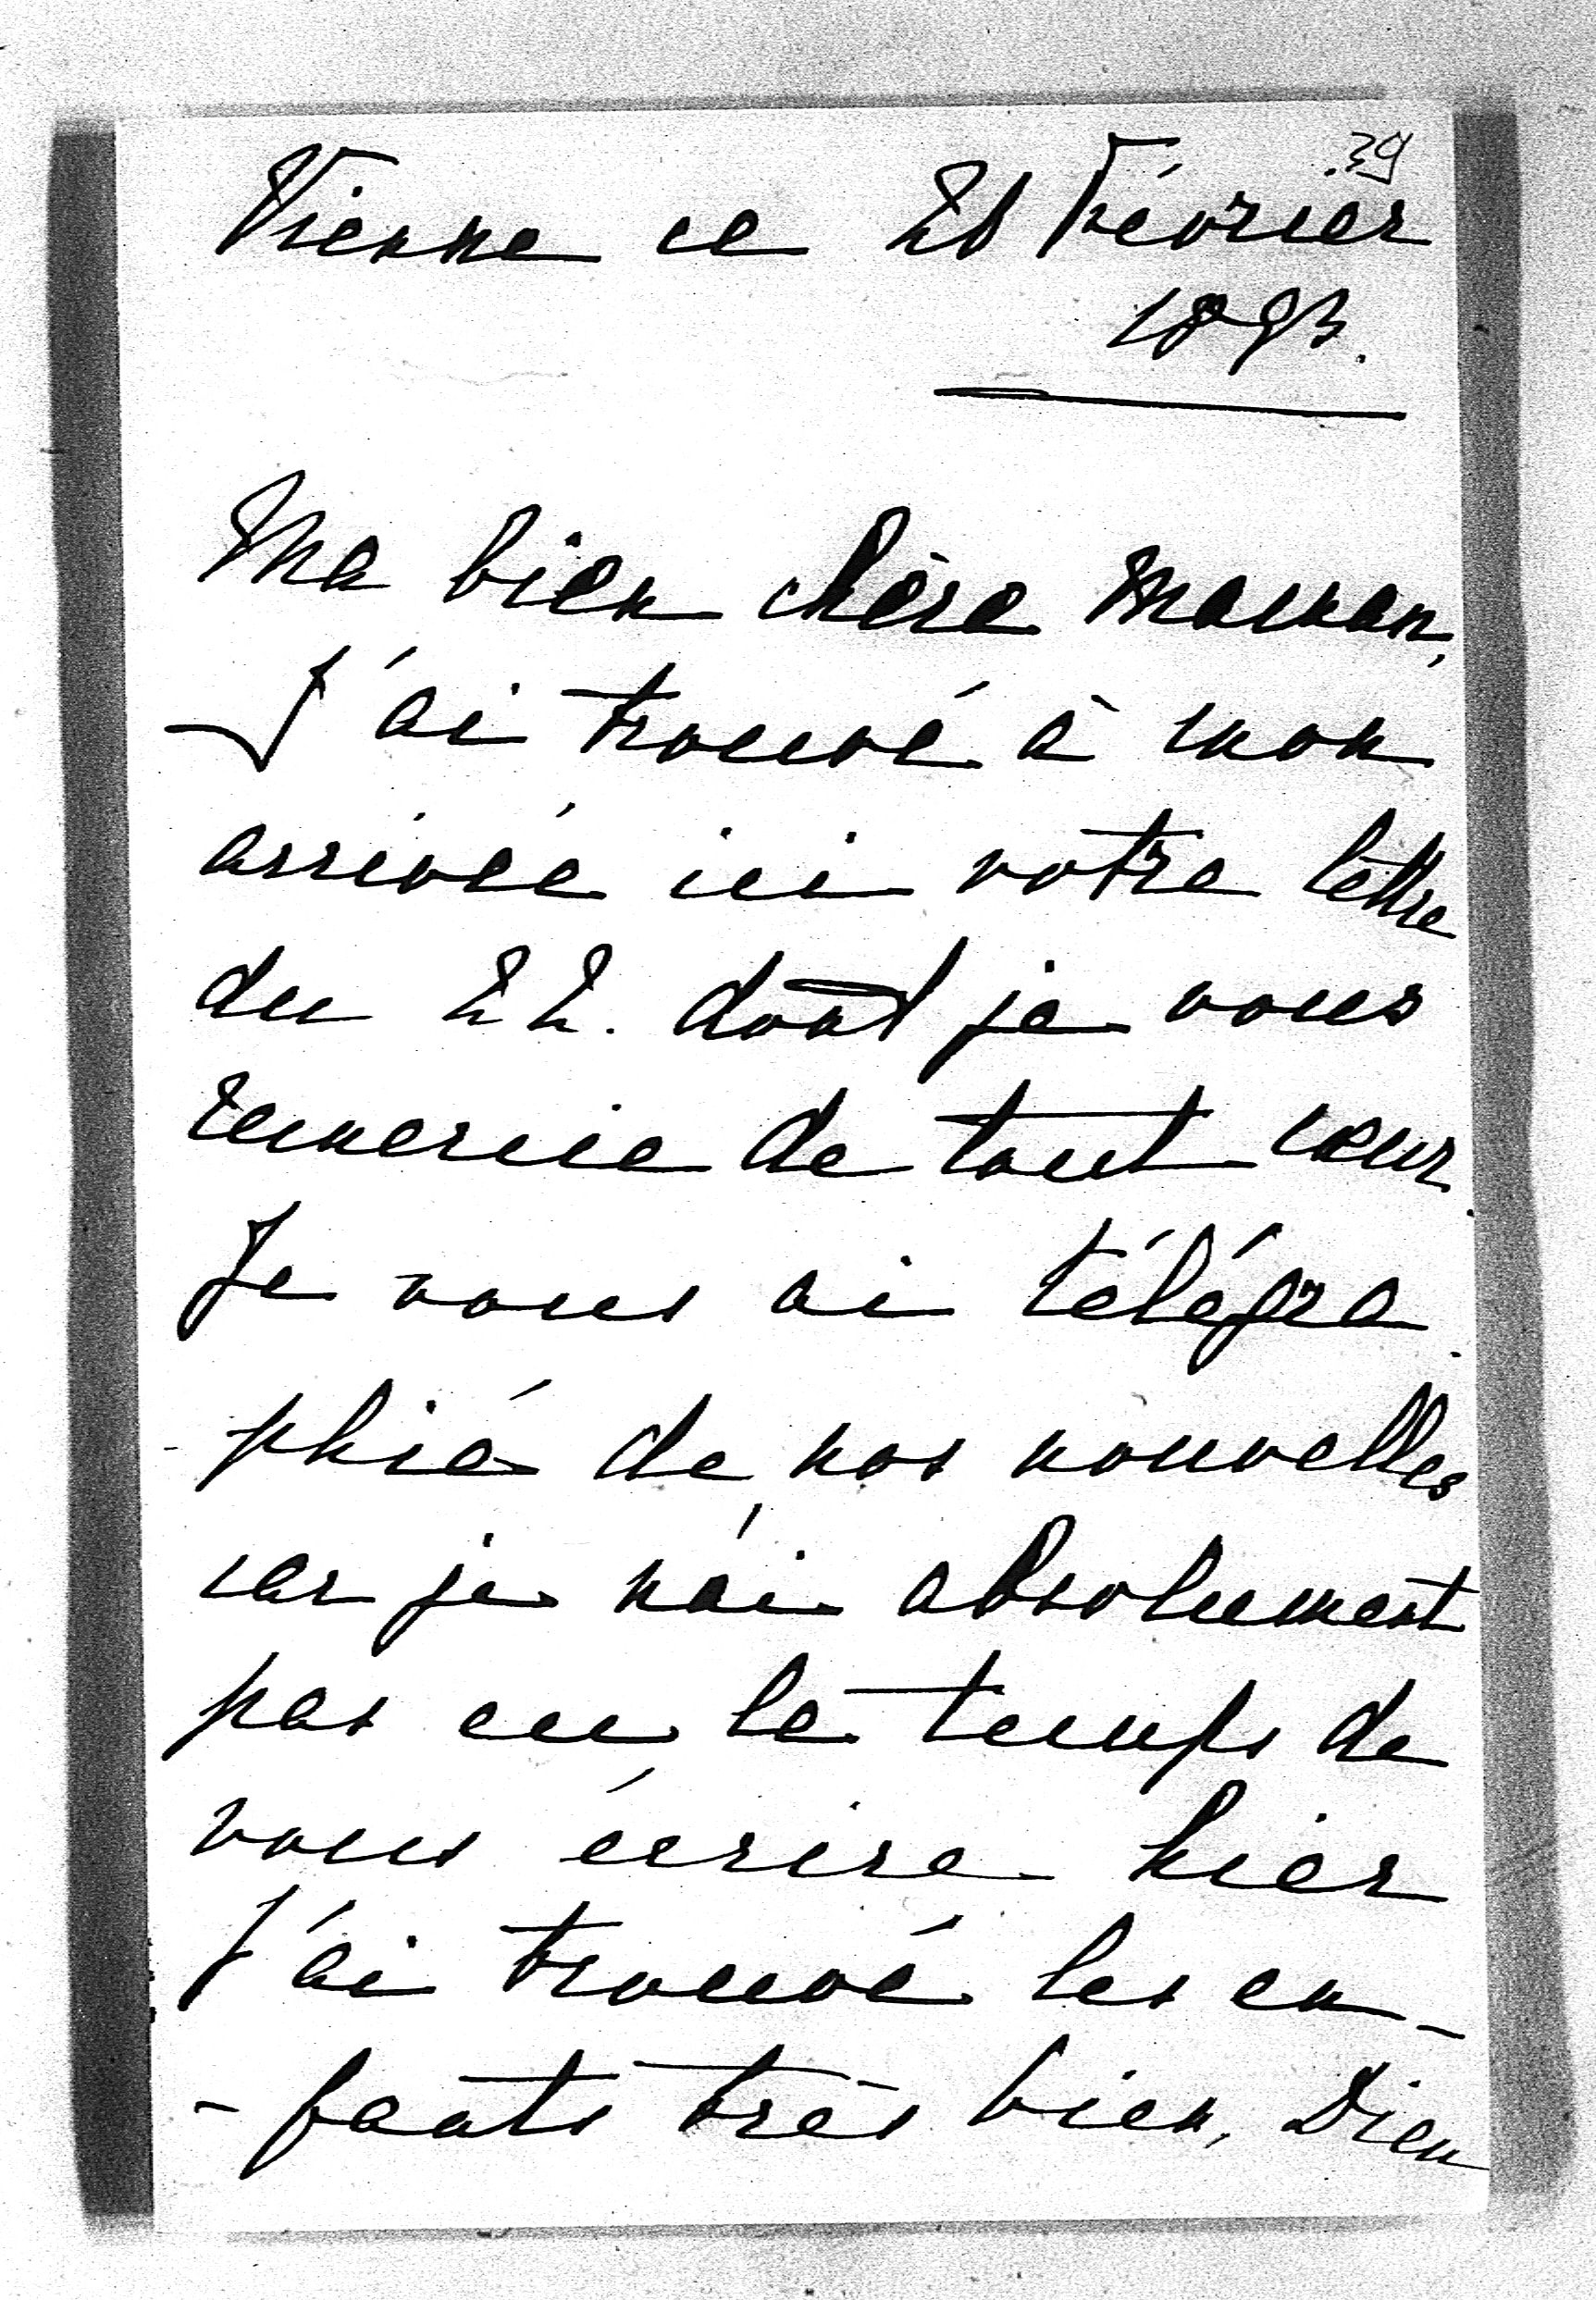 39
Vienne ce 28 Février
1893.
Ma bien chère Maman,
J'ai trouvé à mon
arrivée ici votre lettre
du 22. dont je vous
remercie de tout cœur.
Je vous ai télégra
- phié de nos nouvelles
car je n'ai absolument
pas eu le temps de
vous écrire hier
J'ai trouvé les en-
- fants très bien, Dieu